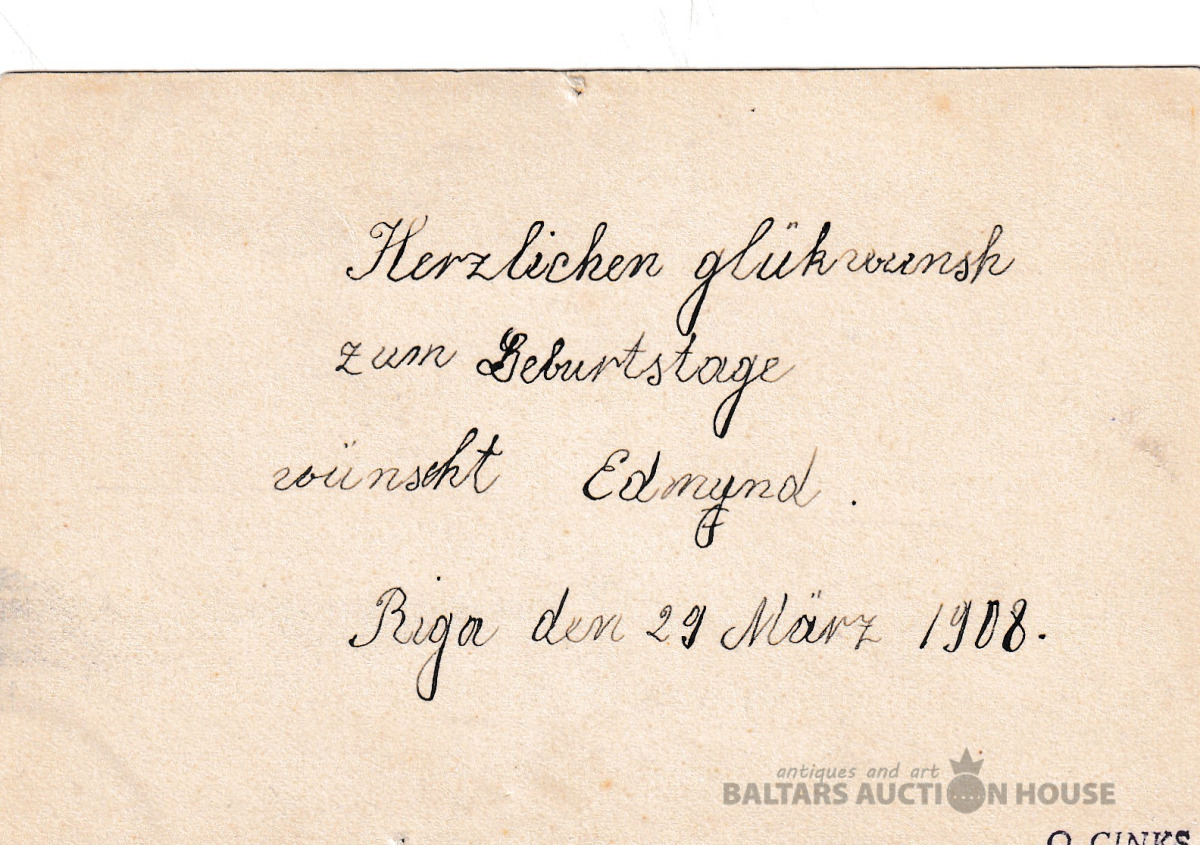 Herzlichen glükwunsh
zum Geburtstage
wünscht Edmynd.
Riga den 29 März 1908.
antiques and art
BALTARS AUCTION HOUSE